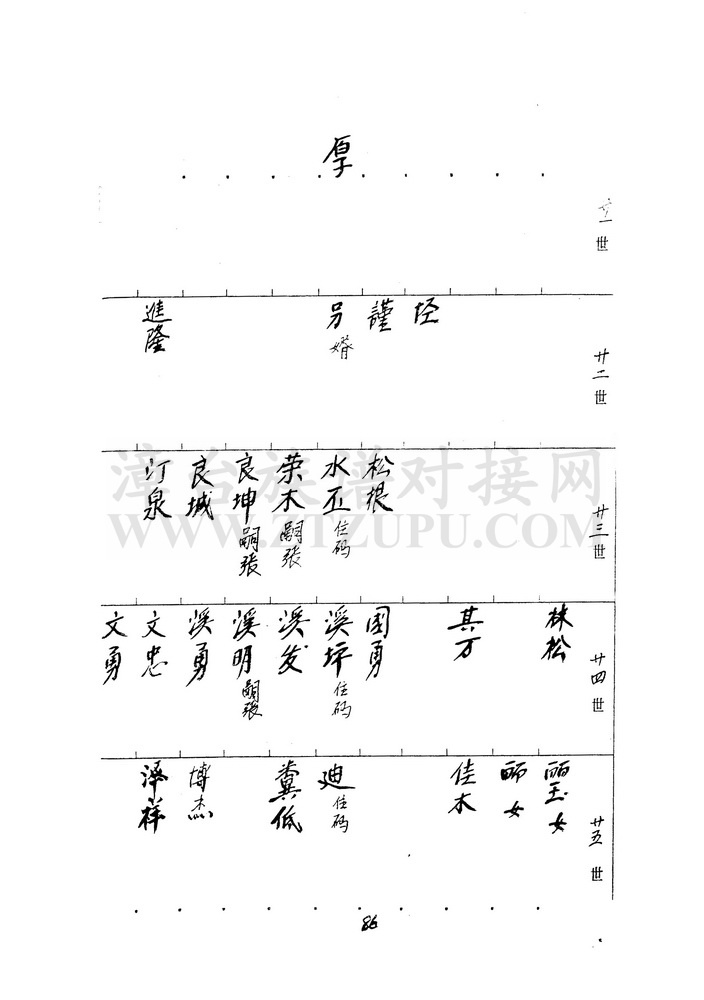 厚
世
廿二世
坯
謹
另婿
進隆
廿三世
松根
水丕 住码
荣木 嗣張
良坤 嗣張
良城
汀泉
廿四世
林松
其万
国勇
溪坪 住码
溪发
溪明 嗣張
溪勇
文忠
文勇
廿五世
丽玉女
女
佳木
迪 住码
粪低
博杰
泽祥
86
漳台族谱对接网
WWW.ZTZUPU.COM